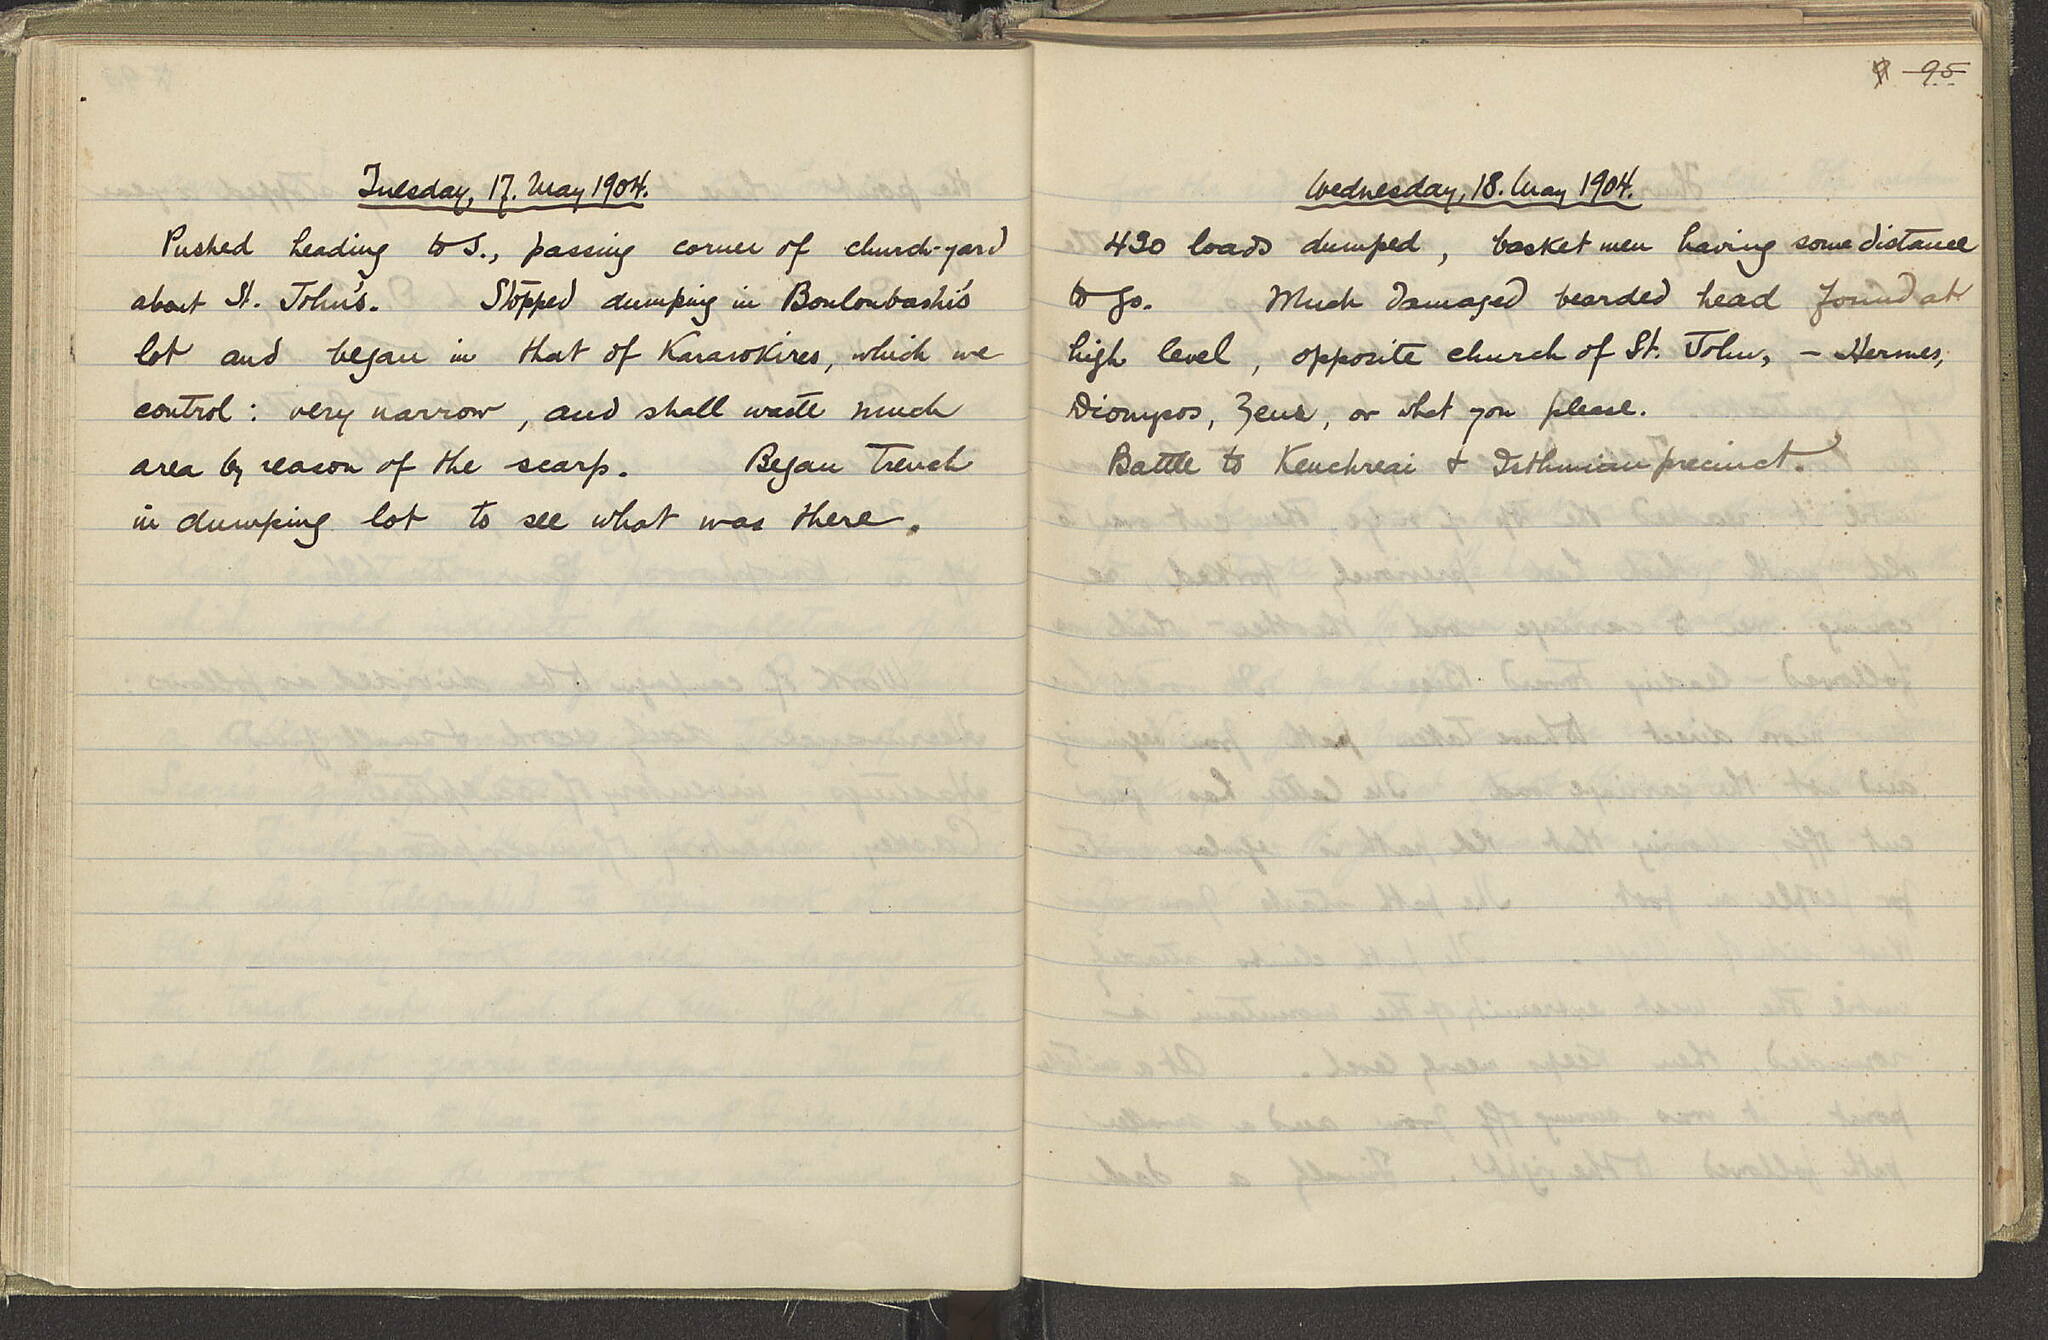 Tuesday, 17. May 1904.
Pushed heading to S., passing corner of church-yard
about St. John's. Stopped dumping in Bouloubashi's
lot and began in that of Karavokires, which we
control: very narrow, and shall waste much
area by reason of the scarp. Began trench
in dumping lot to see what was there.
95
Wednesday, 18. May 1904.
430 loads dumped, basket men having some distance
to go. Much damaged bearded head found at
high level, opposite church of St. John, — Hermes,
Dionysos, Zeus, or what you please.
Battle to Kenchreai & Isthmian precinct.